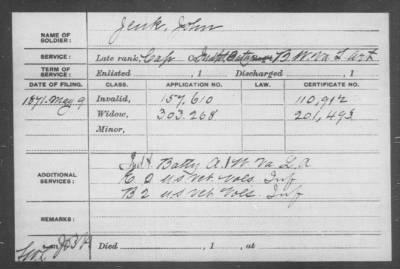 NAME OF SOLDIER: Jenk, John
SERVICE: Late rank, Cap Batty B. W. Va L Art
TERM OF SERVICE: Enlisted , 1 Discharged , 1
DATE OF FILING. CLASS. APPLICATION NO. LAW. CERTIFICATE NO.
1871. May 9 Invalid, 157,610 110,912
Widow, 303.268 201,493
Minor,
ADDITIONAL SERVICES: Batty A. 1 W. Va L. A
E. 2 U.S. Vet. Vols. Inf
B 2 U.S Vet Vols. Inf
REMARKS:
Died , 1 , at